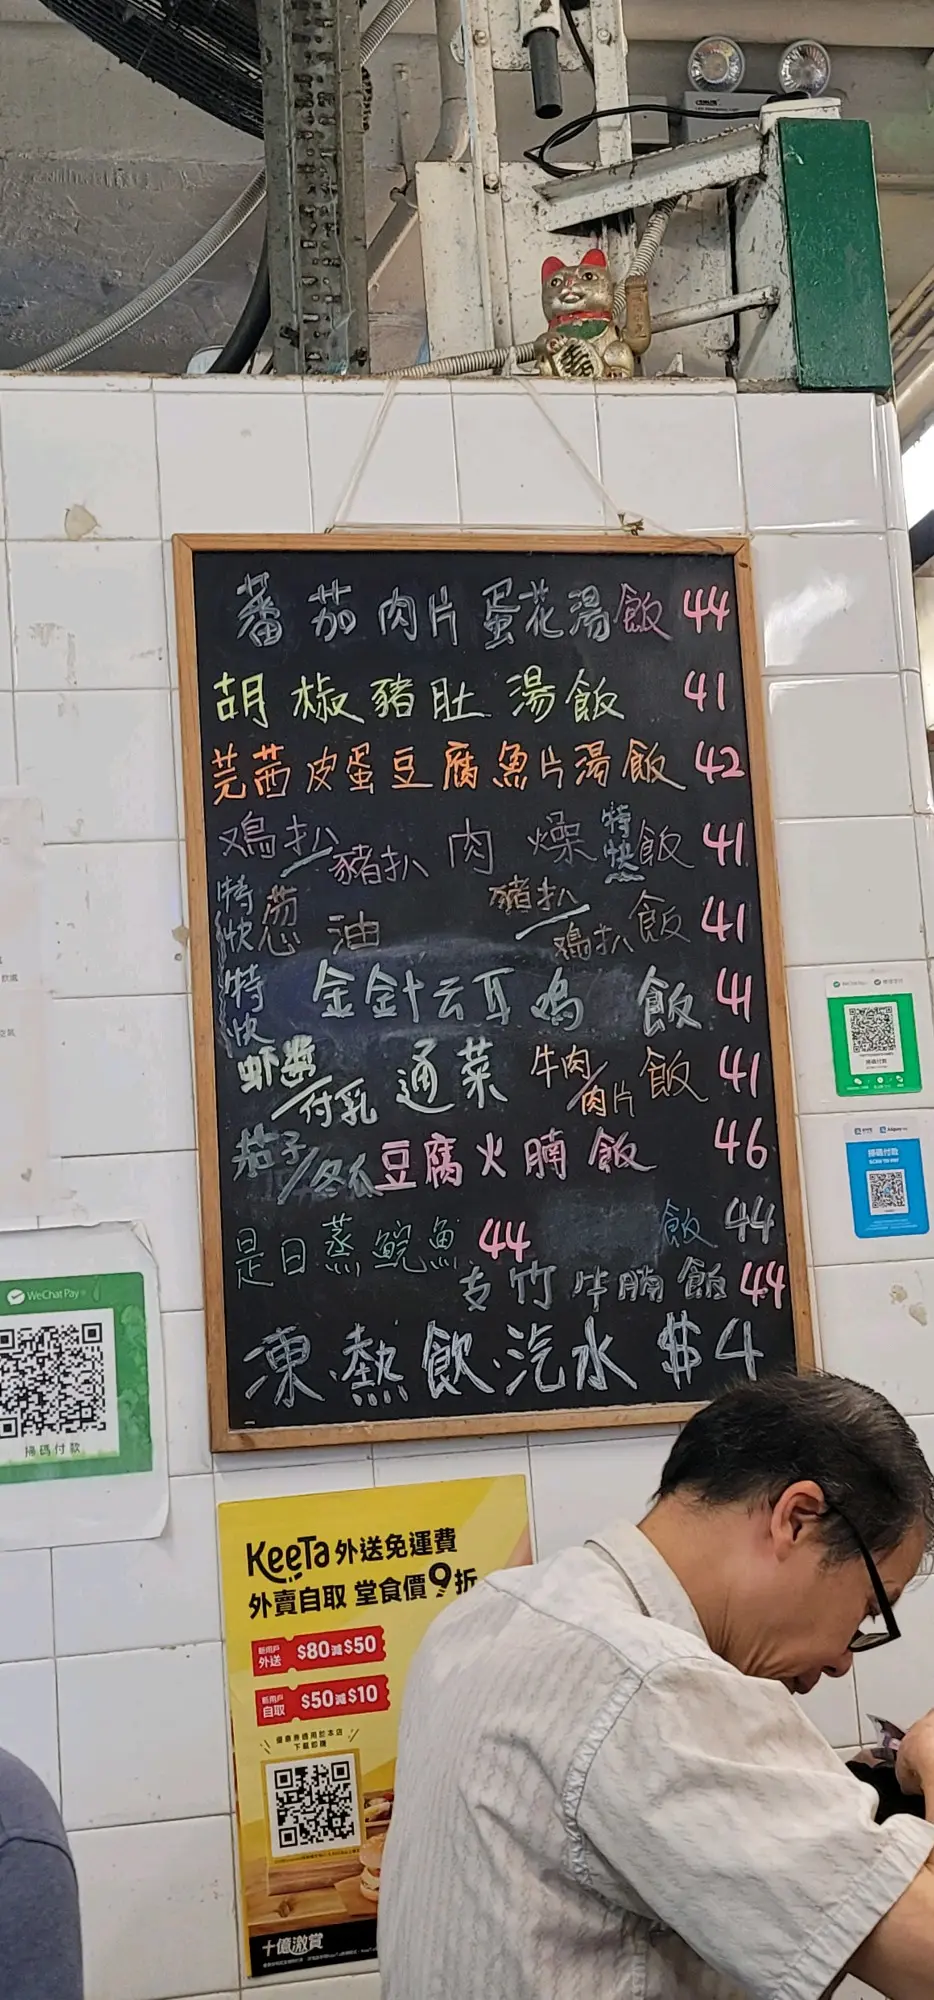 蕃茄肉片蛋花湯飯 44
胡椒豬肚湯飯 41
芫茜皮蛋豆腐魚片湯飯 42
鷄扒/豬扒 肉燥 特快 飯 41
特快 葱油 豬扒/鷄扒 飯 41
特快 金針云耳鸡飯 41
虾醬/付乳 通菜 牛肉/肉片 飯 41
茄子/冬瓜 豆腐火腩飯 46
是日蒸鯇魚 44 飯 44
支竹牛腩飯 44
凍.熱飲.汽水 $4
WeChat Pay
掃碼付款
WeChat Pay
掃碼付款
Alipay
掃碼付款
SCAN TO PAY
KeeTa 外送免運費
外賣自取 堂食價9折
新用戶
外送 $80減$50
新用戶
自取 $50減$10
優惠券適用於本店
下載即賺
十億激賞